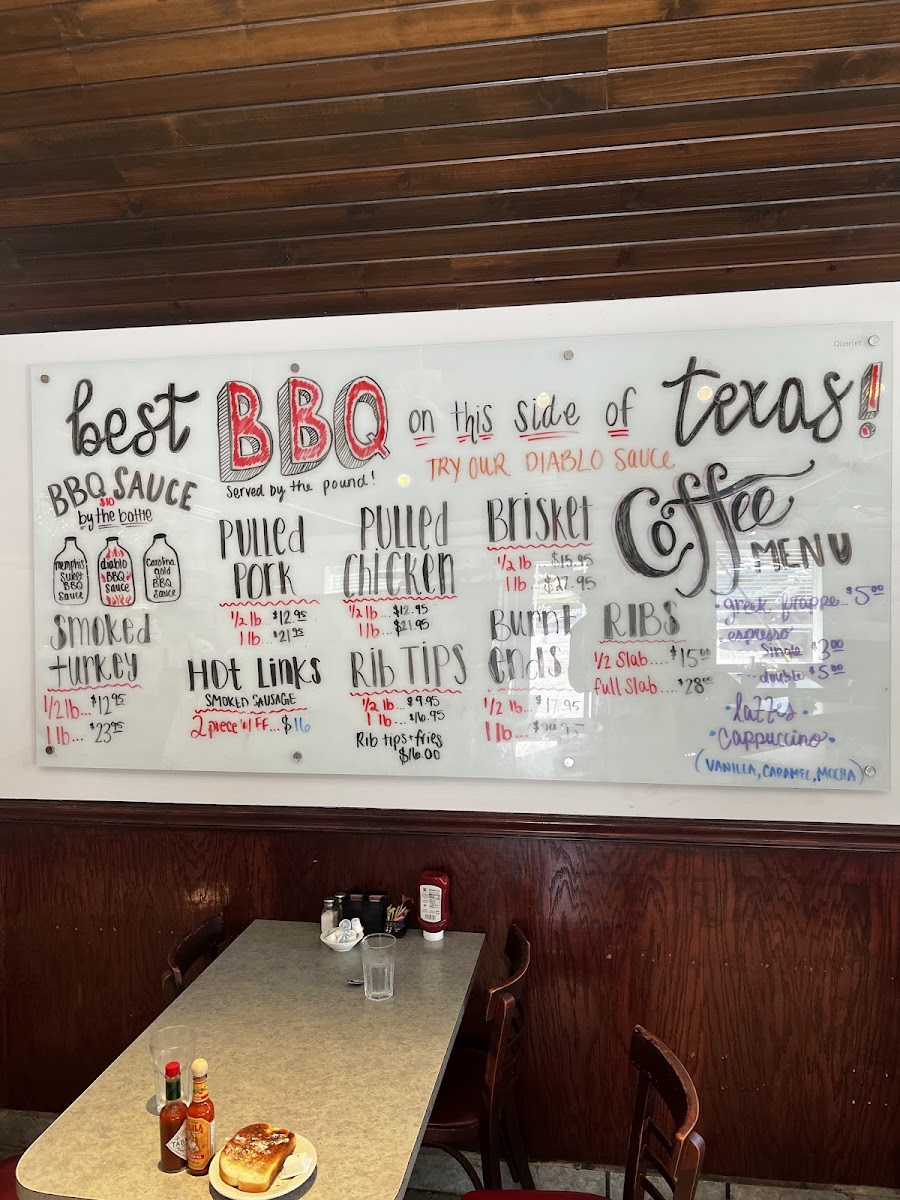 Quartet
best BBQ on this side of texas!
TRY OUR DIABLO SAUCE
Served by the pound!
BBQ SAUCE
$10
by the bottle
memphis
sweet
BBQ
sauce
diablo
BBQ
sauce
carolina
gold
BBQ
sauce
smoked
turkey
1/2 lb...$12.95
1 lb...$23.95
Pulled
Pork
1/2 lb...$12.95
1 lb...$21.95
Hot Links
SMOKED SAUSAGE
2 piece w/ FF...$16
Pulled
Chicken
1/2 lb...$12.95
1 lb...$21.95
Rib Tips
1/2 lb...$9.95
1 lb...$16.95
Rib tips+fries
$16.00
Brisket
1/2 lb $15.95
1 lb...$27.95
Burnt
ends
1/2 lb...$17.95
1 lb...
RIBS
1/2 Slab....$15.00
full Slab....$28.00
Coffee
MENU
greek frappe..$5.00
espresso
single $3.00
double $5.00
lattes
Cappuccino
(VANILLA, CARAMEL, MOCHA)